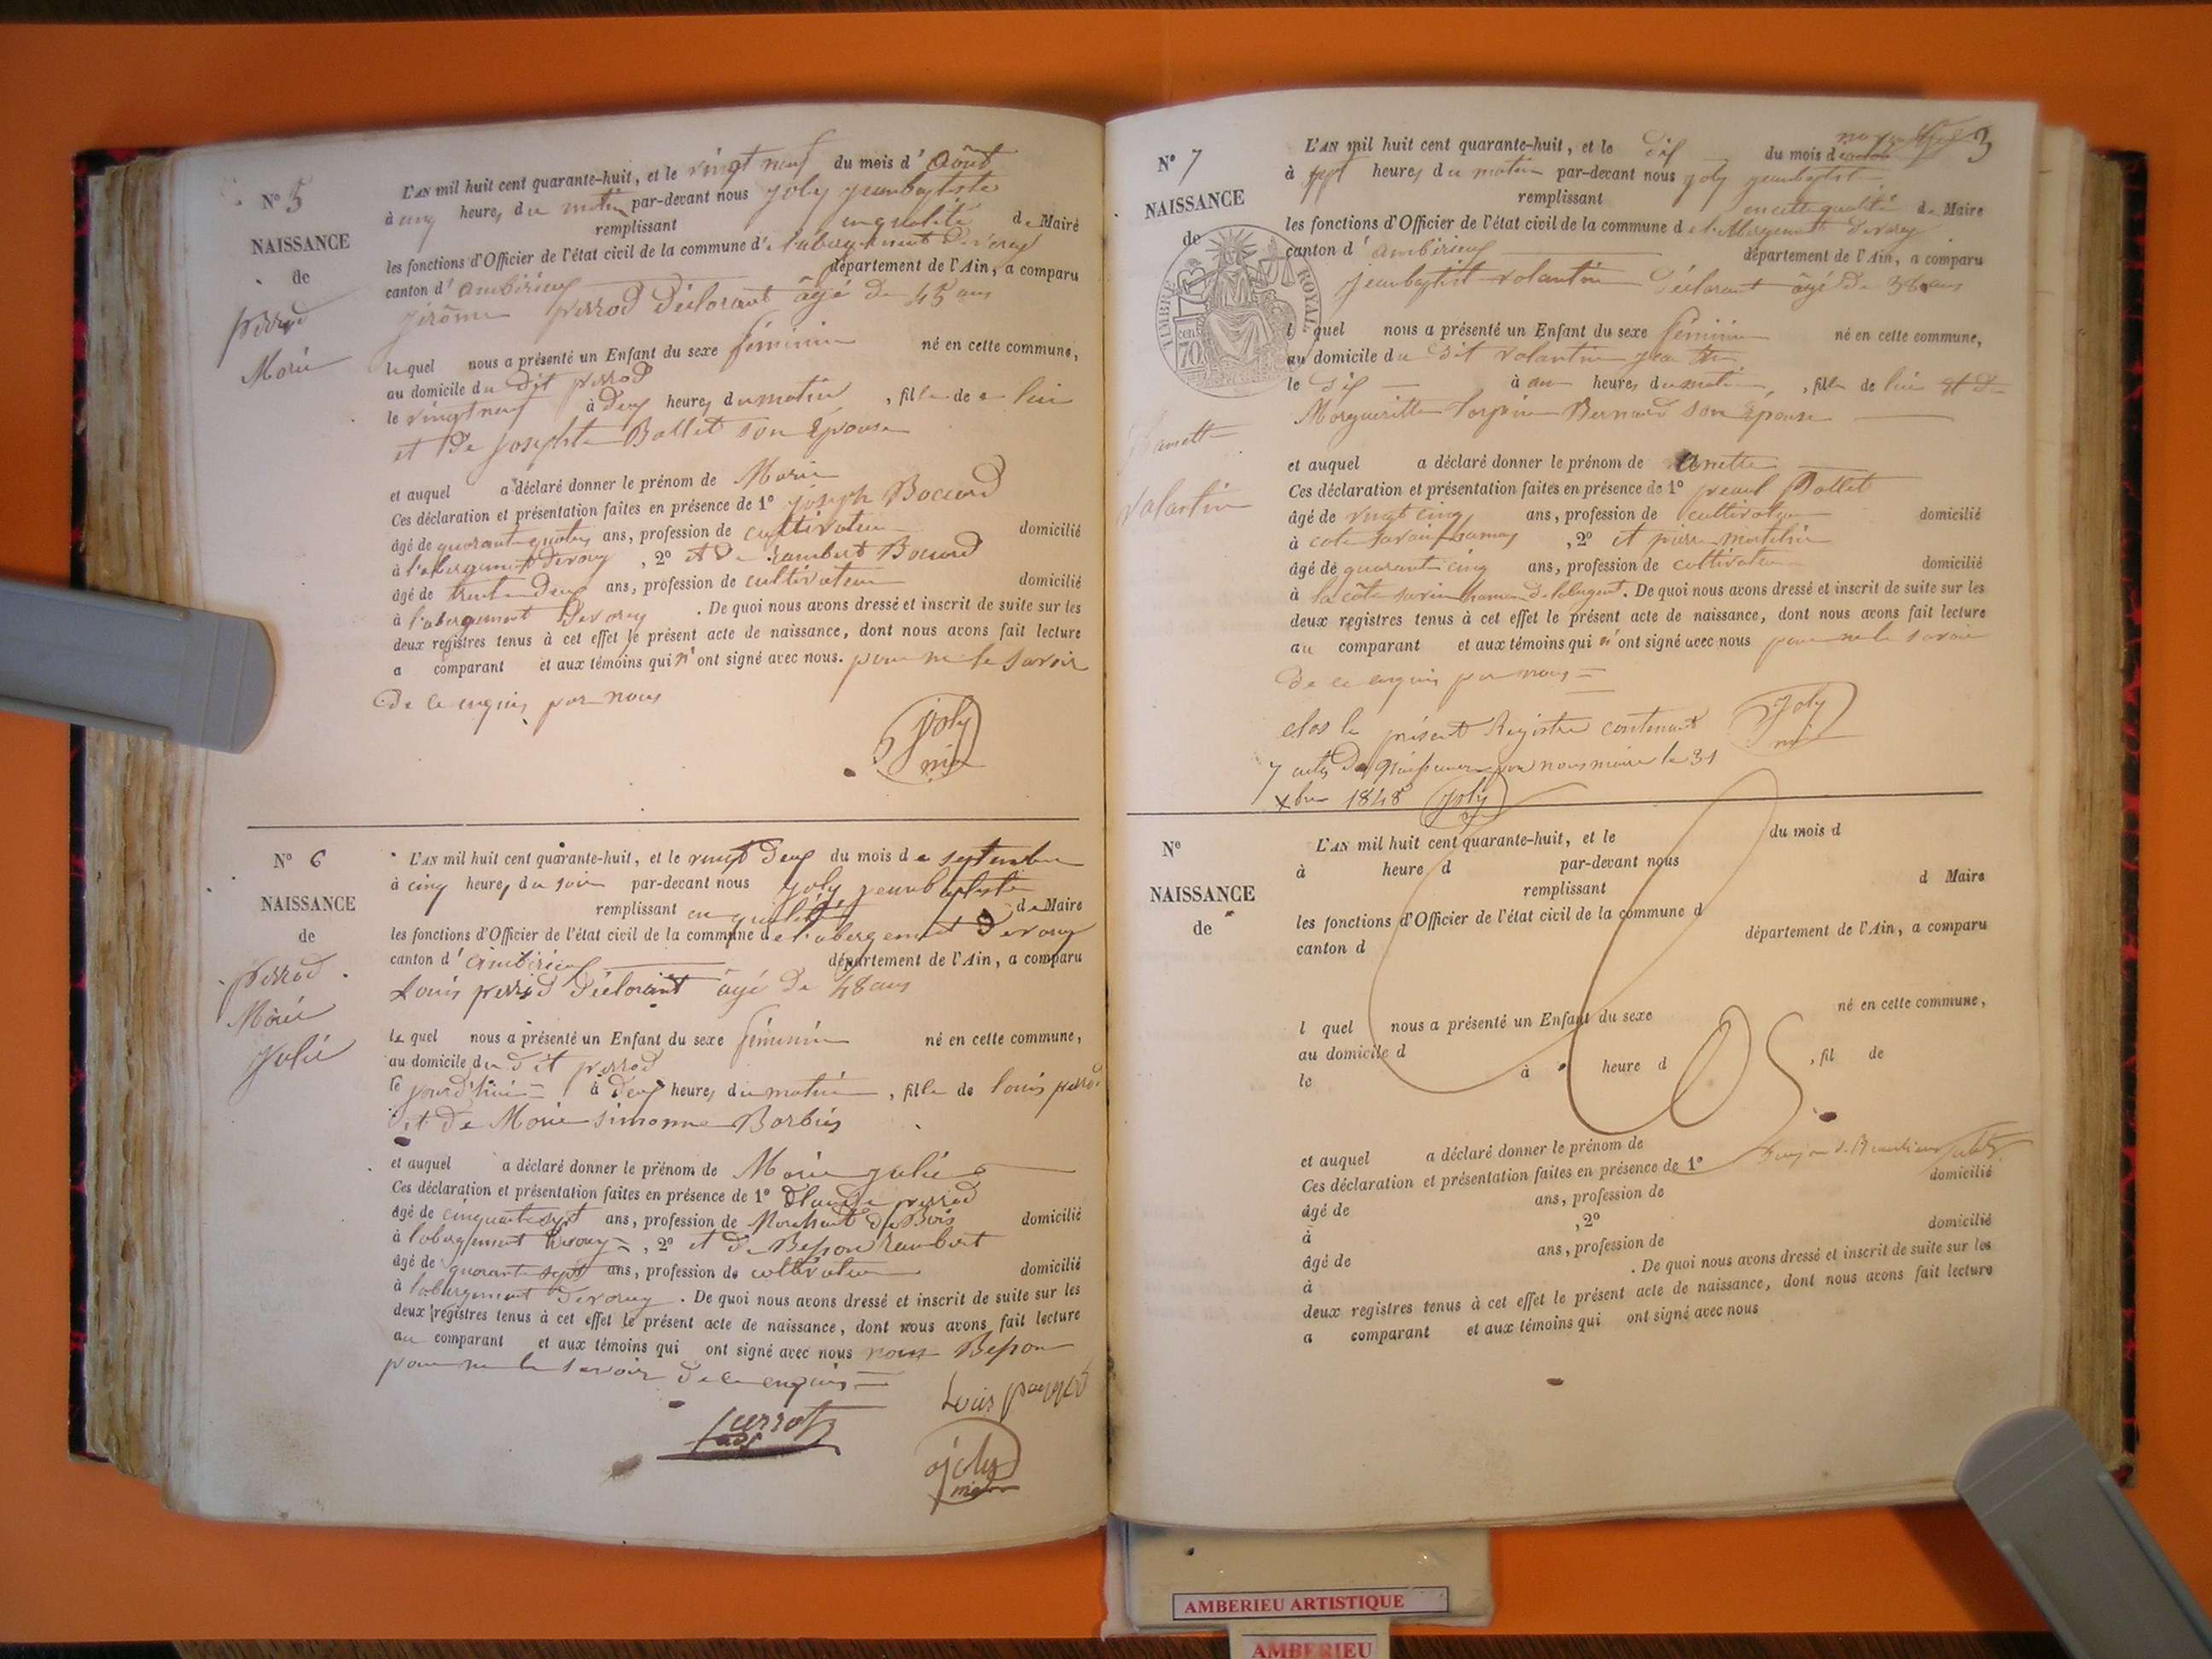 N° 5
NAISSANCE
de
perrod
Marie
L'AN mil huit cent quarante-huit, et le vingt neuf du mois d'Août
à cinq heures du matin par-devant nous joly jeanbaptiste
remplissant en qualité de Maire
les fonctions d'Officier de l'état civil de la commune de l'abergement devarey
canton d'ambérieux département de l'Ain, a comparu
jérôme perrod déclarant âgé de 45 ans
lequel nous a présenté un Enfant du sexe féminin né en cette commune,
au domicile du dit perrod
le vingt neuf à deux heures du matin, fille de lui
et de josephte Ballet son Épouse
et auquel a déclaré donner le prénom de Marie
Ces déclaration et présentation faites en présence de 1° joseph Boccard
âgé de quarante quatre ans, profession de cultivateur domicilié
à l'abergement devarey, 2° et de rambert Boccard
âgé de trente deux ans, profession de cultivateur domicilié
à l'abergement devarey. De quoi nous avons dressé et inscrit de suite sur les
deux registres tenus à cet effet le présent acte de naissance, dont nous avons fait lecture
a comparant et aux témoins qui n'ont signé avec nous. pour ne le savoir
de ce enquis par nous
joly
N° 6
NAISSANCE
de
perrod
Marie
Julie
L'AN mil huit cent quarante-huit, et le vingt deux du mois de septembre
à cinq heures du soir par-devant nous joly jeanbaptiste
remplissant en qualité de Maire
les fonctions d'Officier de l'état civil de la commune de l'abergement devarey
canton d'ambérieux département de l'Ain, a comparu
Louis perrod déclarant âgé de 48 ans
le quel nous a présenté un Enfant du sexe féminin né en cette commune,
au domicile du dit perrod
le jourd'hui à deux heures du matin, fille de louis perrod
et de Marie simonne Barbier
et auquel a déclaré donner le prénom de Marie julie
Ces déclaration et présentation faites en présence de 1° Claude perrod
âgé de cinquante sept ans, profession de Marchant de Bois domicilié
à l'abergement devarey, 2° et de Besson rambert
âgé de quarante sept ans, profession de cultivateur domicilié
à l'abergement devarey. De quoi nous avons dressé et inscrit de suite sur les
deux registres tenus à cet effet le présent acte de naissance, dont nous avons fait lecture
au comparant et aux témoins qui ont signé avec nous Besson
pour ne le savoir de ce enquis
Louis
joly
N° 7
NAISSANCE
de
TIMBRE ROYAL
70 cen
valantin
3
L'AN mil huit cent quarante-huit, et le dix du mois de novembre
à sept heures du matin par-devant nous joly jeanbaptist
remplissant en cette qualité de Maire
les fonctions d'Officier de l'état civil de la commune de l'abergement devarey
canton d'ambérieux département de l'Ain, a comparu
jeanbaptist valantin déclarant âgé de 36 ans
l quel nous a présenté un Enfant du sexe féminin né en cette commune,
au domicile du dit valantin
le dix à heures du matin, fille de lui et de
Margueritte Bernard son Épouse
et auquel a déclaré donner le prénom de anette
Ces déclaration et présentation faites en présence de 1° Ballet
âgé de vingt cinq ans, profession de cultivateur domicilié
à cote savain, 2° et pierre
âgé de quarante cinq ans, profession de cultivateur domicilié
à la côte savin. De quoi nous avons dressé et inscrit de suite sur les
deux registres tenus à cet effet le présent acte de naissance, dont nous avons fait lecture
au comparant et aux témoins qui n'ont signé avec nous pour ne le savoir
de ce enquis par nous
clos le présent Registre contenant
7 actes de naissances par nous maire le 31
xbre 1848 joly
joly
N°
NAISSANCE
de
L'AN mil huit cent quarante-huit, et le du mois d
à heure d par-devant nous
remplissant d Maire
les fonctions d'Officier de l'état civil de la commune d
canton d département de l'Ain, a comparu
l quel nous a présenté un Enfant du sexe né en cette commune,
au domicile d
le à heure d, fil de
et auquel a déclaré donner le prénom de
Ces déclaration et présentation faites en présence de 1°
âgé de ans, profession de domicilié
à, 2°
âgé de ans, profession de domicilié
à. De quoi nous avons dressé et inscrit de suite sur les
deux registres tenus à cet effet le présent acte de naissance, dont nous avons fait lecture
a comparant et aux témoins qui ont signé avec nous
AMBERIEU ARTISTIQUE
AMBERIEU